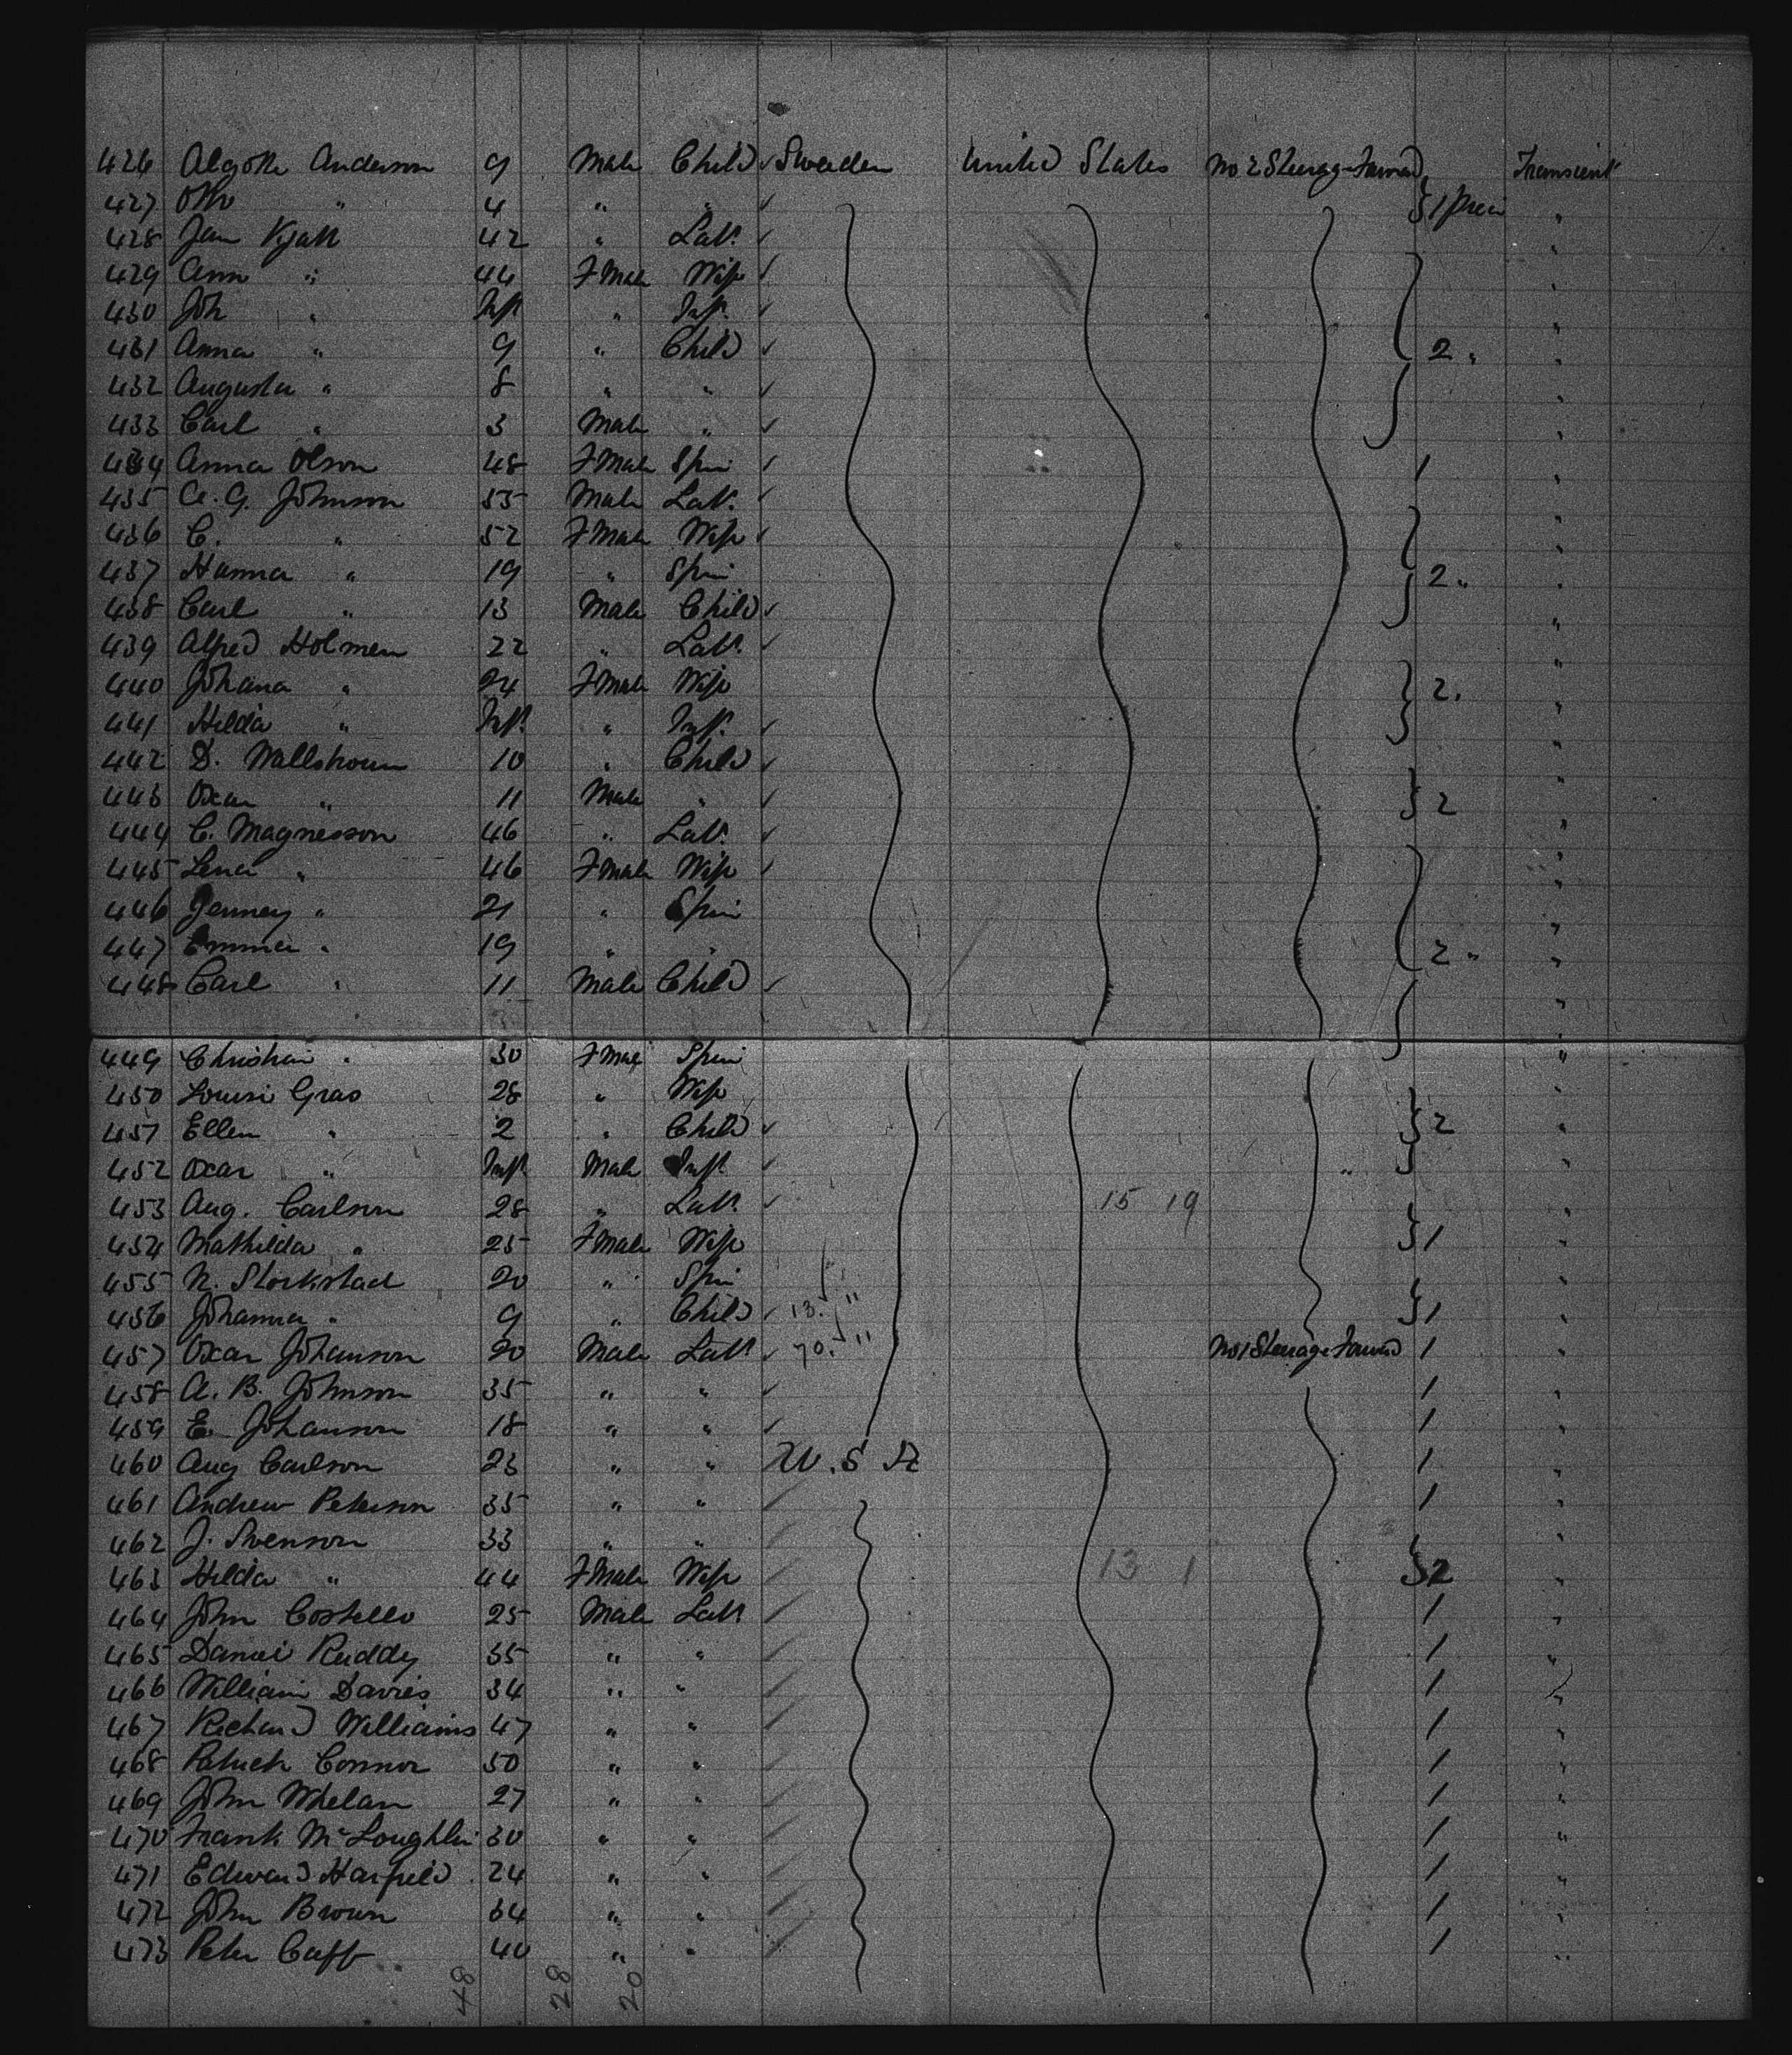 426 Algoth Anderson 9 Male Child ✓ Sweden United States No 2 Steerage Forward Transient
427 Otto " 4 " " ✓ } 1 piece "
428 Jan Kjall 42 " Lab. ✓ "
429 Ann " 44 F Male Wife ✓ "
430 Joh " Inft " Inft. ✓ "
431 Anna " 9 " Child ✓ 2 " "
432 Augusta " 8 " " ✓ "
433 Carl " 3 Male " ✓ "
434 Anna Olson 48 F Male Spin ✓ 1 "
435 A. G. Johnson 55 Male Lab. ✓ "
436 C. " 52 F Male Wife ✓ "
437 Hanna " 19 " Spin 2 " "
438 Carl " 13 Male Child ✓ "
439 Alfred Holmen 22 " Lab. ✓ "
440 Johana " 24 F Male Wife 2 " "
441 Hilda " Inft. " Inft. ✓ "
442 D. Wallstroum 10 " Child ✓ "
443 Oscar " 11 Male " ✓ } 2 "
444 C. Magnesson 46 " Lab. ✓ "
445 Lena " 46 F Male Wife ✓ "
446 Jenney " 21 " Spin "
447 Emma " 19 " " 2 " "
448 Carl " 11 Male Child ✓ "
449 Christian " 30 F Male Spin "
450 Louisi Gras 28 " Wife "
451 Ellen " 2 " Child ✓ } 2 "
452 Oscar " Inft Male Inft. ✓ "
453 Aug. Carlson 28 " Lab. ✓ 15 19 "
454 Mathilda " 25 F Male Wife } 1 "
455 N. Storkstad 20 " Spin "
456 Johanna " 9 " Child ✓ 13. " } 1 "
457 Oscar Johanson 20 Male Lab ✓ 70. " No 1 Steerage Forward 1 "
458 A. B. Johnson 35 " " ✓ 1 "
459 E. Johanson 18 " " ✓ 1 "
460 Aug Carlson 23 " " U. S. A 1 "
461 Andrew Peterson 35 " " 1 "
462 J. Svenson 33 " " "
463 Hilda " 44 F Male Wife 13 1 } 2 "
464 John Costello 25 Male Lab 1 "
465 Daniel Ruddy 35 " " 1 "
466 William Davies 34 " " 1 "
467 Richard Williams 47 " " 1 "
468 Patrick Connor 50 " " 1 "
469 John Whelan 27 " " 1 "
470 Frank McLoughlin 30 " " 1 "
471 Edward Harfield 24 " " 1 "
472 John Brown 34 " " 1 "
473 Peter Caff 40 " " 1 "
48 28 20